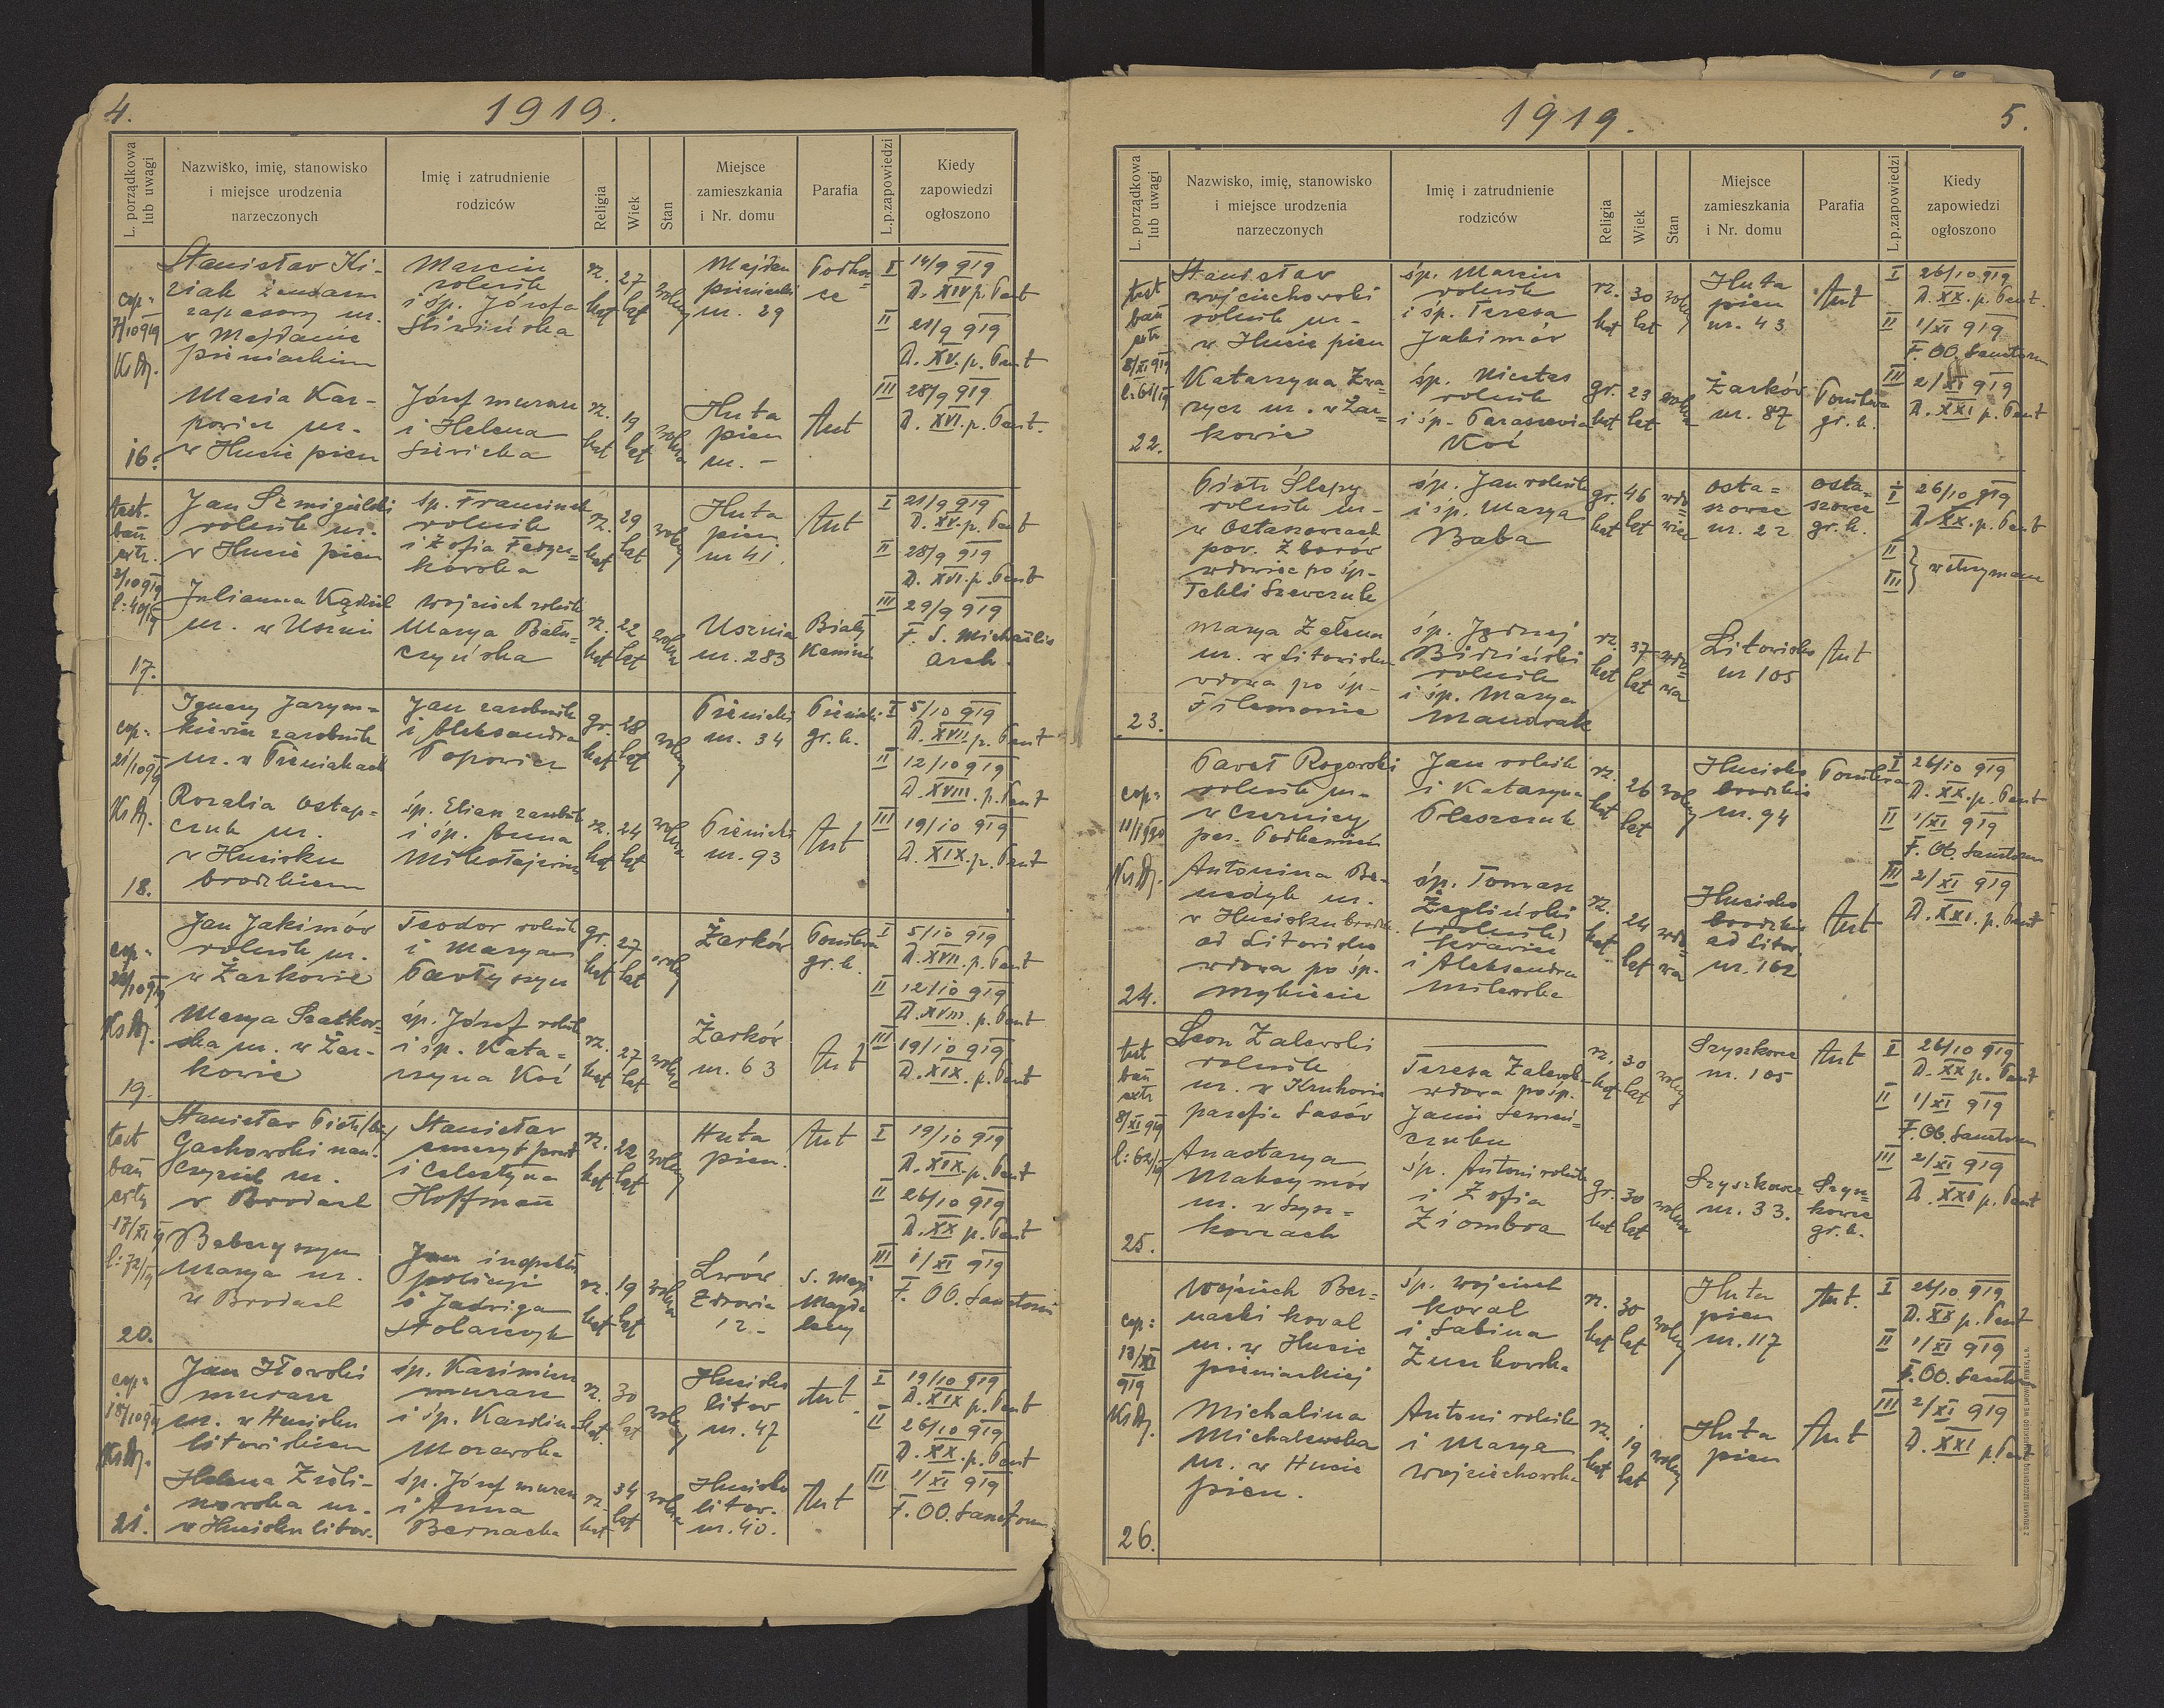 4.
1919.
L. porządkowa
lub uwagi
Nazwisko, imię, stanowisko
i miejsce urodzenia
narzeczonych
Imię i zatrudnienie
rodziców
Religia
Wiek
Stan
Miejsce
zamieszkania
i Nr. domu
Parafia
L.p.zapowiedzi
Kiedy
zapowiedzi
ogłoszono
cop=
7/10 919
16.
Stanisław Ki-
ziak żandarm
zapasowy ur.
w Majdanie
pieniackim
Marcin
rolnik
i śp. Józefa
Śliwińska
rz.
kat
27
lat
wolny
Majdan
pieniacki
nr. 29
Podka=
I 14/9 919
D. XIV p. Pent
II 21/9 919
D. XV. p. Pent
III 28/9 919
D. XVI. p. Pent.
Maria Kar-
powicz ur.
w Hucie pien
Józef murarz
i Helena
rz.
kat
19
lat
wolna
Huta
pien
nr. -
Aut
test.
bań
extr.
2/10 919
17.
Jan Szmigielski
rolnik ur.
w Hucie pien
śp. Franciszek
rolnik
i Zofia
rz.
kat
29
lat
wolny
Huta
pien
nr 41.
Aut
I 21/9 919
D. XV. p. Pent
II 28/9 919
D. XVI. p. Pent
III 29/9 919
F. S. Michaëlis
arch.
Julianna
ur. w Uszni
Wojciech rolnik
Marya Bału-
czyńska
rz.
kat
22
lat
wolna
Usznia
nr. 283
Biały
Kamień
cop=
21/10 919
18.
Ignacy Jarym=
kiewicz zarobnik
ur. w Pieniakach
Jan zarobnik
i Aleksandra
Popowicz
gr.
kat
28
lat
wolny
Pieniaki
nr. 34
Pieniaki
gr. k.
I 5/10 919
D. XVII p. Pent
II 12/10 919
D. XVIII. p. Pent
III 19/10 919
D. XIX. p. Pent
Rozalia Ostap-
czuk ur.
w Hucisku
brodzkiem
śp. Eliasz zarobnik
i śp. Anna
Mikołajewicz
rz.
kat
24
lat
wolna
Pieniaki
nr. 93
Aut
cop=
19.
Jan Jakimów
rolnik ur.
w Żarkowie
Teodor rolnik
i Marya
Pawłyszyn
gr.
kat
27
lat
wolny
Żarków
Ponikwa
gr. k.
I 5/10 919
D. XVII. p. Pent
II 12/10 919
D. XVIII. p. Pent
III 19/10 919
D. XIX. p. Pent
Marya Szatkow-
ska ur. w Żar-
kowie
śp. Józef rolnik
i śp. Kata=
rzyna Koć
rz.
kat
27
lat
wolna
Żarków
nr. 63
Aut
test
bań
17/XI 9
l: 72/19
20.
Stanisław
Gachowski nau-
czyciel ur.
w Brodach
Stanisław
emeryt
i Celestyna
Hoffman
rz.
kat
22
lat
wolny
Huta
pien.
Aut
I 19/10 919
D. XIX. p. Pent
II 26/10 919
D. XX p. Pent
III 1/XI 919
F. OO. Sanctorum
Baberyszyn
Marya ur.
w Brodach
Jan
policyi
i Jadwiga
Stolarczyk
rz.
kat
19
lat
wolna
Lwów
Zdrowia
12-
S. Maryi
Magda
leny
cop=
18/10 919
21.
Jan Iłowski
murarz
ur. w Hucisku
litowiskiem
śp. Kazimierz
murarz
i śp. Karolina
Morawska
rz.
kat.
30
lat
wolny
Hucisko
litow
nr. 47
Aut
I 19/10 919
D. XIX p. Pent
II 26/10 919
D. XX. p. Pent
III 1/XI 919
F. OO. Sanctorum
Helena Zieli-
nowska ur.
w Hucisku litow.
śp. Józef murarz
i Anna
Bernacka
rz.
kat
34
lat
wolna
Hucisko
litow.
nr. 40.
Aut
1919.
5.
L. porządkowa
lub uwagi
Nazwisko, imię, stanowisko
i miejsce urodzenia
narzeczonych
Imię i zatrudnienie
rodziców
Religia
Wiek
Stan
Miejsce
zamieszkania
i Nr. domu
Parafia
L.p.zapowiedzi
Kiedy
zapowiedzi
ogłoszono
test
bań
extr
8/XI 919
l: 61/19
22.
Stanisław
Wojciechowski
rolnik ur-
w Hucie pien
śp. Marcin
rolnik
i śp. Teresa
Jakimów
rz.
kat
30
lat
wolny
Huta
pien
nr. 43
Aut
I 26/10 919
D. XX. p. Pent.
II 1/XI 919
F. OO. Sanctorum
III 2/XI 919
D. XXI p. Pent
Katarzyna
ur. w Żar=
kowie
śp. Nicetas
rolnik
i śp. Paraszewia
Koć
gr.
kat
23
lat
wolna
Żarków
nr. 87
Ponikwa
gr. k.
23.
Piotr Ślepy
rolnik ur-
w Ostaszowcach
pow. Zborów
wdowiec po śp-
Tekli Szewczuk
śp. Jan rolnik
i śp. Marya
Baba
gr.
kat
46
lat
wdo=
wiec
Osta=
szowce
nr. 22
Osta=
szowce
gr. k.
I 26/10 919
D. XX. p. Pent
II
III } wstrzymane
Marya Zełena
ur. w Litowisku
wdowa po śp-
Filemonie
śp. Jędrzej
Bidziński
rolnik
i śp. Marya
rz.
kat
37
lat
wdo=
wa
Litowisko
nr 105
Aut
cop=
11/I 920
24.
Paweł Rogowski
rolnik ur-
w Czernicy
par. Podkamień
Jan rolnik
i Katarzyna
Pleszczuk
rz.
kat
26
lat
wolny
Hucisko
brodzkie
nr. 94
Ponikwa
I 26/10 919
D. XX. p. Pent
II 1/XI 919
F. OO. Sanctorum
III 2/XI 919
D. XXI. p. Pent
Antonina Be-
nedyk ur.
w Hucisku brodz.
ad Litowisko
wdowa po śp.
Mykicie
śp. Tomasz
Żegliński
(rolnik)
krawiec
i Aleksandra
Milewska
rz.
kat.
24
lat
wdo=
wa
Hucisko
brodzkie
ad Litow
nr. 162
Aut
test
bań
extr
8/XI 919
l: 62/19
25.
Leon Zalewski
rolnik
ur. w Kruhowie
parafia Sasów
Teresa Zalewska
wdowa po śp.
Janie Semeń-
czuku
rz.
kat
30
lat
wolny
Szyszkowce
nr. 105
Aut
I 26/10 919
D. XX p. Pent
II 1/XI 919
F. OO. Sanctorum
III 2/XI 919
D. XXI p. Pent
Anastazya
Maksymów
ur. w Szysz=
kowcach
śp. Antoni rolnik
i Zofia
Ziombra
gr.
kat
30
lat
wolna
Szyszkowce
nr. 33.
Szysz=
kowce
gr. k.
cop=
13/XI
919
26.
Wojciech Ber=
nacki kowal
ur. w Hucie
pieniackiej
śp. Wojciech
kowal
i Sabina
Żunkowska
rz.
kat
30
lat
wolny
Huta
pien
nr. 117
Aut.
I 26/10 919
D. XX p. Pent
II 1/XI 919
F. OO. Sanctorum
III 2/XI 919
D. XXI p. Pent
Michalina
Michalewska
ur. w Hucie
pien.
Antoni rolnik
i Marya
Wojciechowska
rz.
kat
19
lat
wolna
Huta
pien
Aut